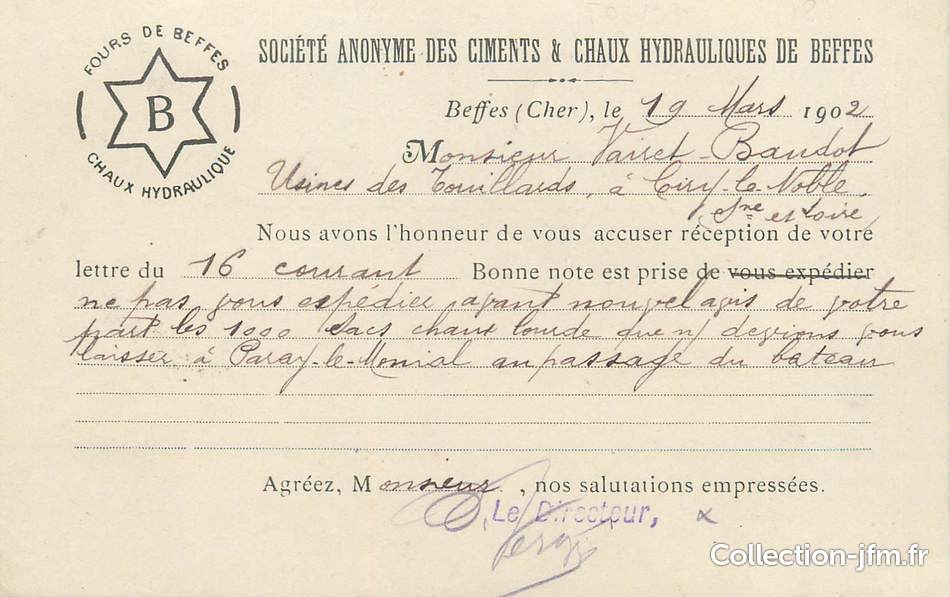 FOURS DE BEFFES
B
CHAUX HYDRAULIQUE
SOCIÉTÉ ANONYME DES CIMENTS & CHAUX HYDRAULIQUES DE BEFFES
Beffes (Cher), le 19 Mars 1902
Monsieur Vairet-Baudot
Usines des Touillards, à Ciry-le-Noble
Sne et Loire
Nous avons l'honneur de vous accuser réception de votre
lettre du 16 courant Bonne note est prise de vous expédier
ne pas vous expédier avant nouvel avis de votre
part les 1000 sacs chaux lourde que n/ devions vous
laisser à Paray-le-Monial au passage du bateau
Agréez, Monsieur, nos salutations empressées.
Le Directeur,
Collection-jfm.fr